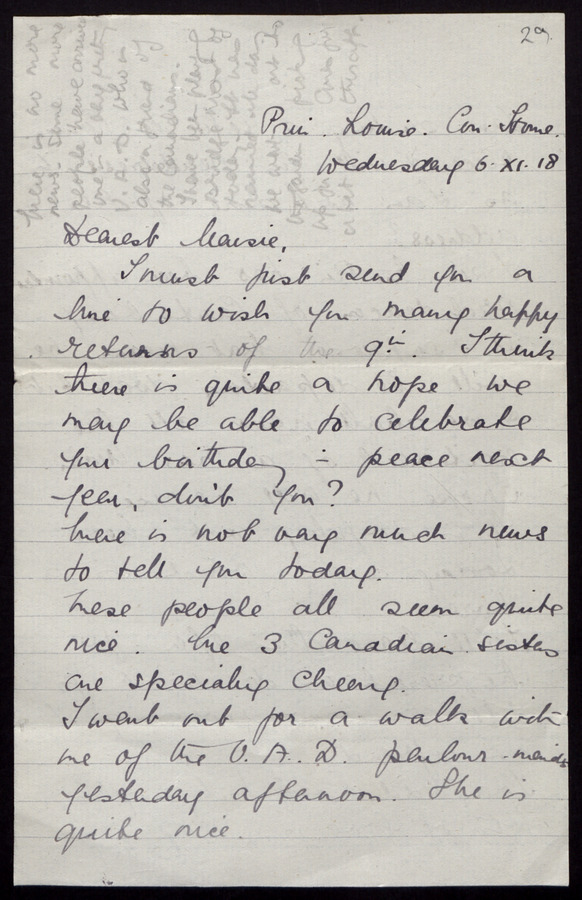 29
Prin. Louise. Con. Home.
Wednesday 6. XI. 18
Dearest Maisie,
I must just send you a
line to wish you many happy
returns of the 9th. I think
there is quite a hope we
may be able to celebrate
your birthday in peace next
year, don't you?
There is not very much news
to tell you today.
These people all seem quite
nice. The 3 Canadian sisters
are specially cheery.
I went out for a walk with
one of the V. A. D. parlour-maids
yesterday afternoon. She is
quite nice.
There is no more
news. Some more
people have arrived
a very
V. A. D. who is
also fond of
the Canadians.
I have been playing
bridge most of
today. It has
rained all day
we went out to